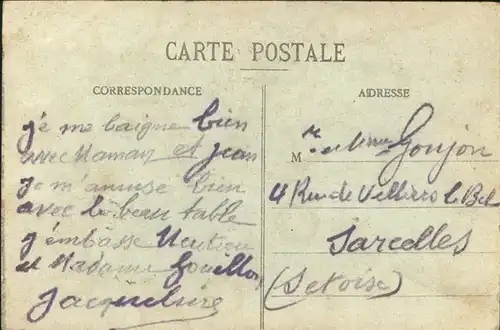 CARTE POSTALE
CORRESPONDANCE
ADRESSE
je me baigne bien
avec Maman et jean
je m'amuse bien
avec le beau table
j'embasse
et Madame Gouillon
Jacqueline
Mr et Mme Goujon
4 Rue de Villiers le Bel
Sarcelles
(Set oise)